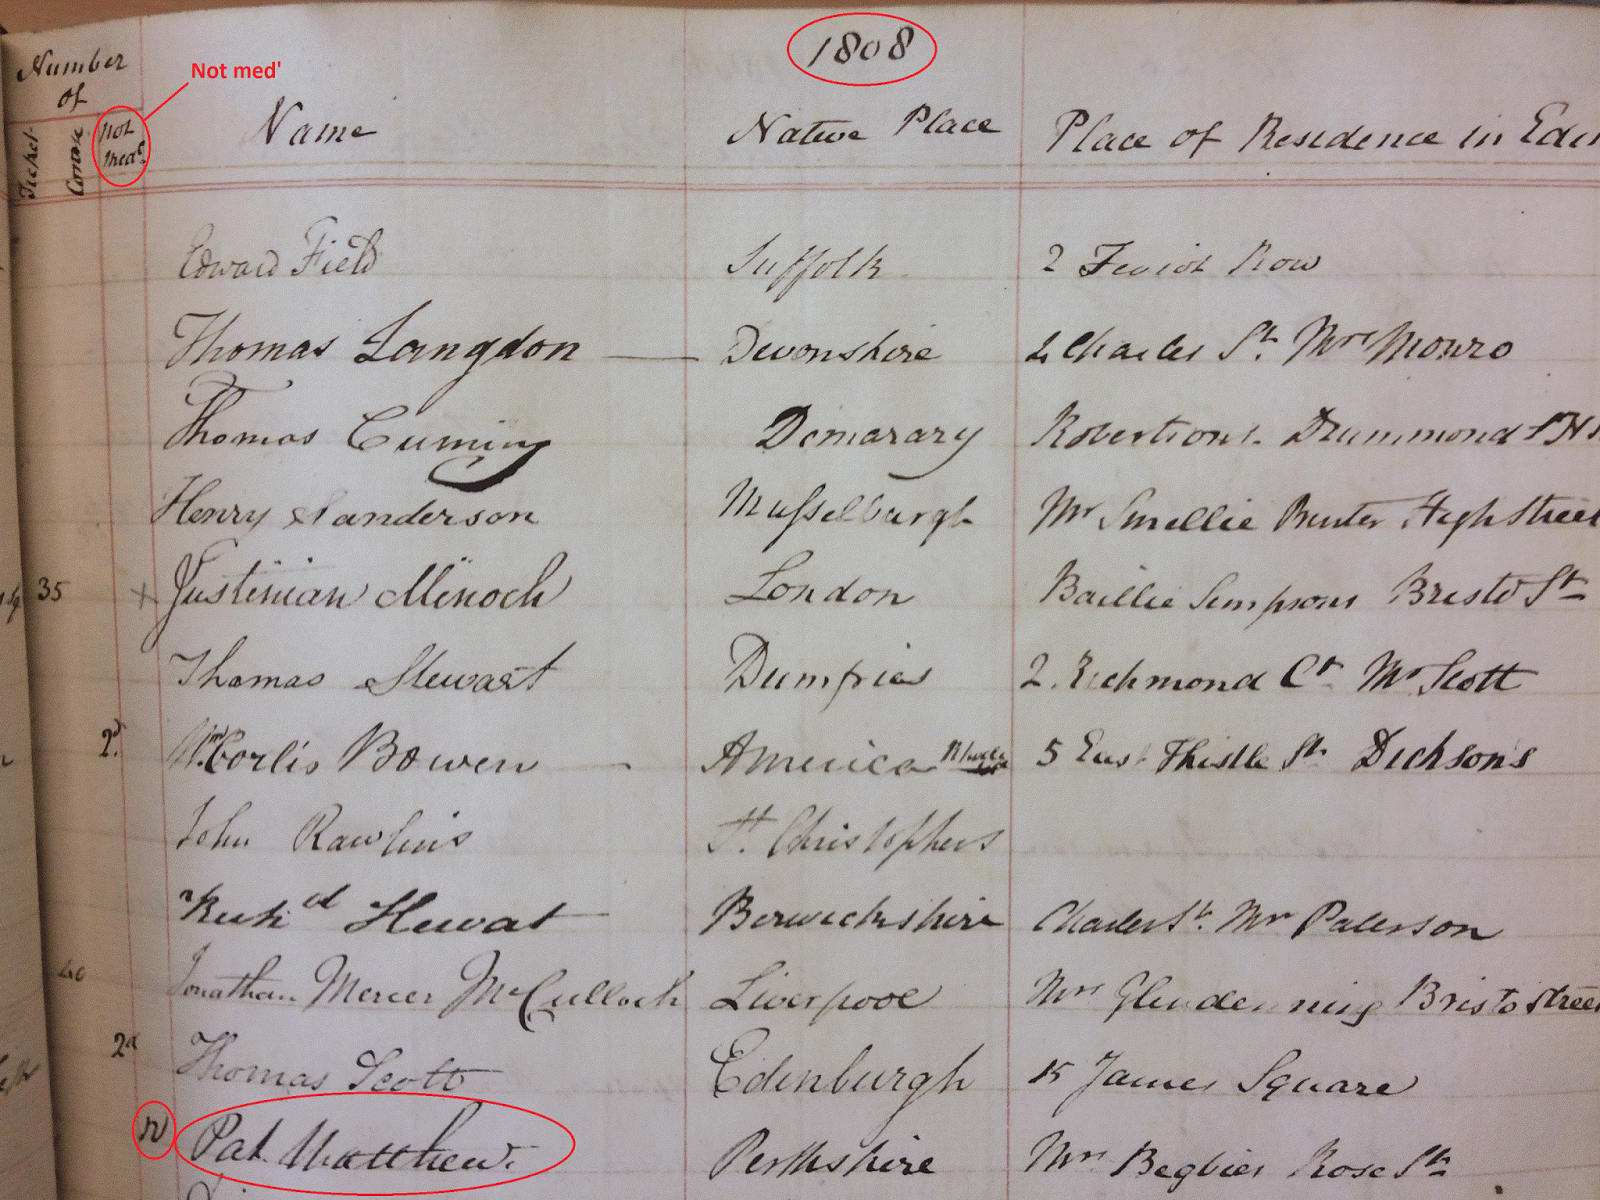 1808
Not med'
Number
of
Ticket
Course
Not
Med.
Name
Native Place
Place of Residence in Edin
Edward Field Suffolk 2 Teviot Row
Thomas Langdon Devonshire 2 Charles St. Mrs Monro
Thomas Cuming Demarary Robertsons. Drummond St
Henry Sanderson Musselburgh Mr Smellie Printer High Street
35 x Justinian Minoch London Baillie Simpsons Bristo St
Thomas Stewart Dumfries 2. Richmond Ct Mr Scott
2d. Wm. Corlis Bowen America 5 East Thistle St. Dicksons
John Rawlins St. Christophers
Richd Hewat Berwickshire Charles St. Mrs Paterson
40 Jonathan Mercer McCulloch Liverpool Mrs Glendenning Bristo Street
2d Thomas Scott Edenburgh 15 James Square
N Pat. Matthew. Perthshire Mrs Begbies Rose St